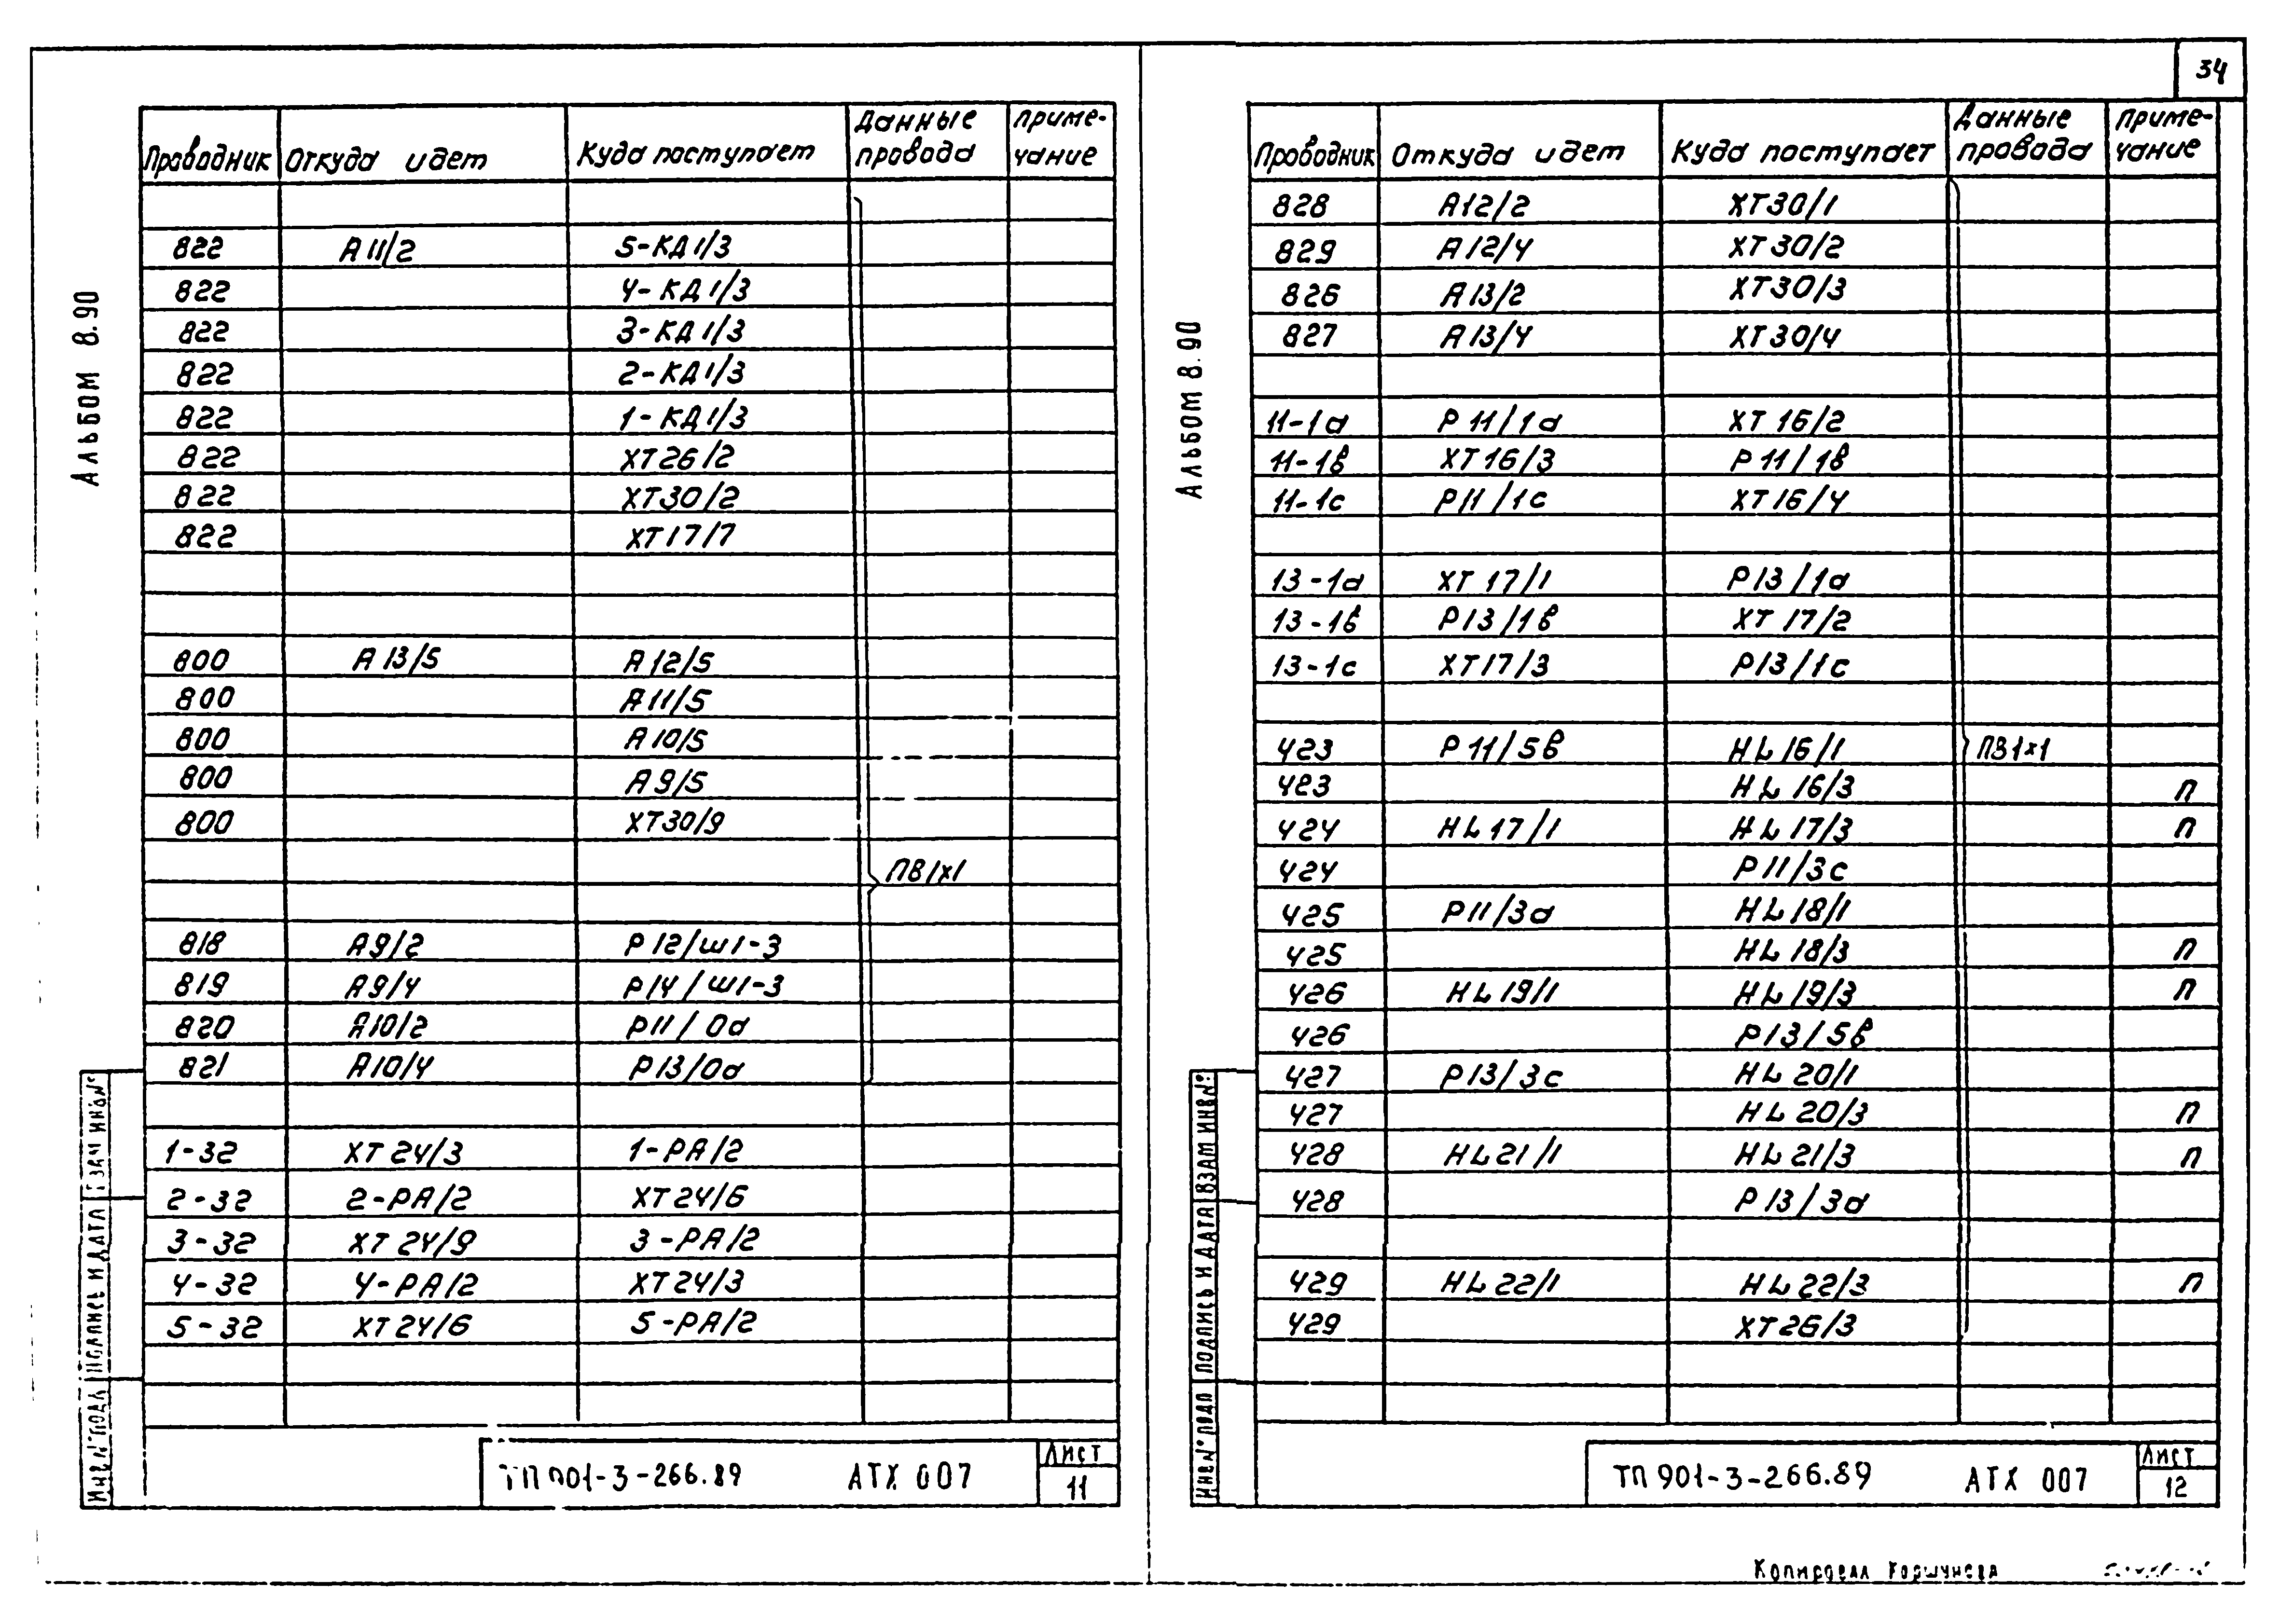 34
Альбом 8.90
Проводник Откуда идет Куда поступает Данные провода Примечание
822 А11/2 5-КД1/3
822 4-КД1/3
822 3-КД1/3
822 2-КД1/3
822 1-КД1/3
822 ХТ26/2
822 ХТ30/2
822 ХТ17/7
800 А13/5 А12/5
800 А11/5
800 А10/5
800 А9/5
800 ХТ30/9
ПВ1х1
818 А9/2 Р12/Ш1-3
819 А9/4 Р14/Ш1-3
820 А10/2 Р11/0а
821 А10/4 Р13/0а
1-32 ХТ24/3 1-РА/2
2-32 2-РА/2 ХТ24/6
3-32 ХТ24/9 3-РА/2
4-32 4-РА/2 ХТ24/3
5-32 ХТ24/6 5-РА/2
Инв№подл Подпись и дата Взам инв№
ТП 901-3-266.89 АТХ 007
Лист
11
Альбом 8.90
Проводник Откуда идет Куда поступает Данные провода Примечание
828 А12/2 ХТ30/1
829 А12/4 ХТ30/2
826 А13/2 ХТ30/3
827 А13/4 ХТ30/4
11-1а Р11/1а ХТ16/2
11-1в ХТ16/3 Р11/1в
11-1с Р11/1с ХТ16/4
13-1а ХТ17/1 Р13/1а
13-1в Р13/1в ХТ17/2
13-1с ХТ17/3 Р13/1с
423 Р11/5в HL16/1 ПВ1х1
423 HL16/3 П
424 HL17/1 HL17/3 П
424 Р11/3с
425 Р11/3а HL18/1
425 HL18/3 П
426 HL19/1 HL19/3 П
426 Р13/5в
427 Р13/3с HL20/1
427 HL20/3 П
428 HL21/1 HL21/3 П
428 Р13/3а
429 HL22/1 HL22/3 П
429 ХТ26/3
Инв№подл Подпись и дата Взам инв№
ТП 901-3-266.89 АТХ 007
Лист
12
Копировал Коршунова